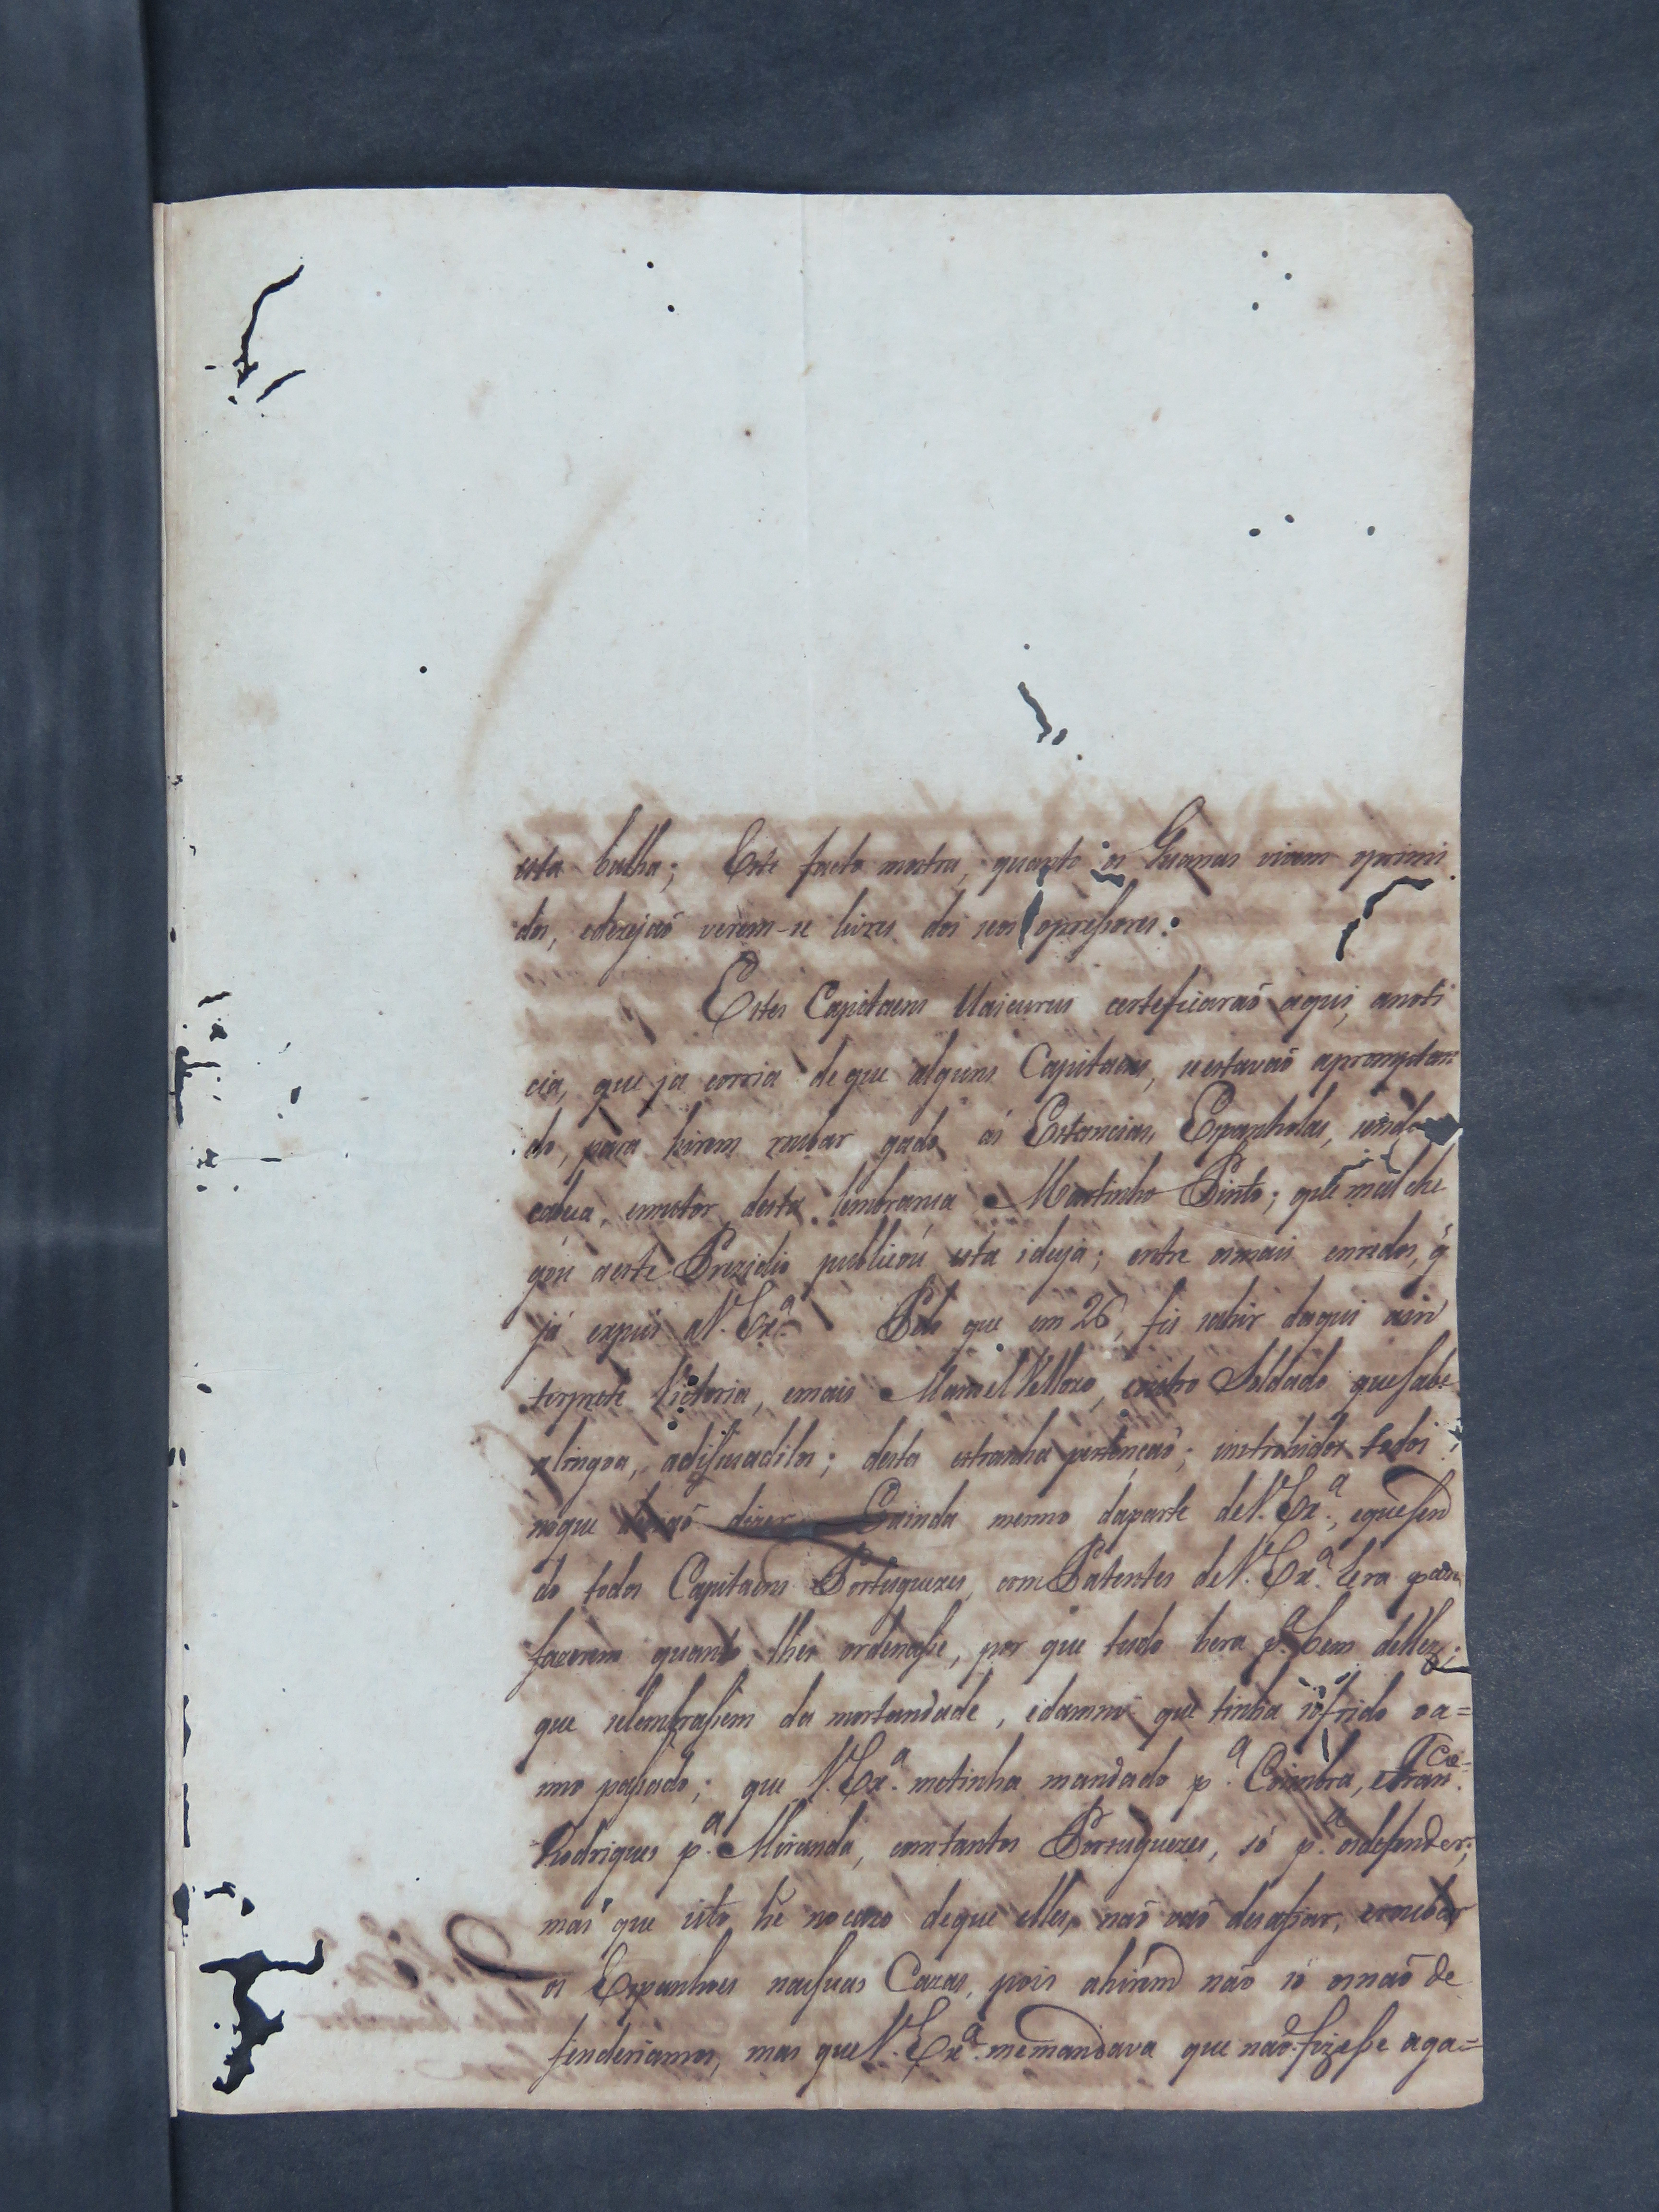 esta bulha; Este facto mostra, quanto os Guanas vivem oprimi
dos, edezejaõ verem-se livres dos seos opreßores.
Estes Capitaens Uaicurus certeficaraõ aqui, anoti
cia, que ja corria de que alguns Capitaens, seestavaõ apromptan
do, para hirem roubar gado ás Estancias, Espanholas, sendo
cabeça, emotor desta lembransa Martinho Pinto; que mal che
gou aeste Prezidio publicou esta ideya; entre osmais enredos, q̃
já expuis aV. Exª. Pelo que em 26, fis sahir daqui oin
terprete Victoria, emais Manoel Vellozo, eoutro Soldado quesabe
alingoa, adißuadilos; desta estranha pertençaõ; instrohidos todos
noque dizer Eainda mesmo daparte deV. Exª., equesen
do todos Capitaens Portuguezes, com Patentes deV. Exª. hera para
fazerem quanto lhes ordenaße, por que tudo hera pª. bem delles;
que selembraßem da mortandade, edamno que tinha sofrido oa=
nno paßado; que V. Exª. metinha mandado pª. Coimbra, eFranᶜᵒ
Rodrigues pª. Miranda, comtantos Portuguezes, só pª. osdefender;
mas que isto hé nocazo deque elles, naõ vaõ desafiar, eroubar
os Espanhoes nasSuas Cazas, pois ahirem não só osnaõ de
fenderiamos, mas queV. Exª. memandava que naõ fizeße aga=